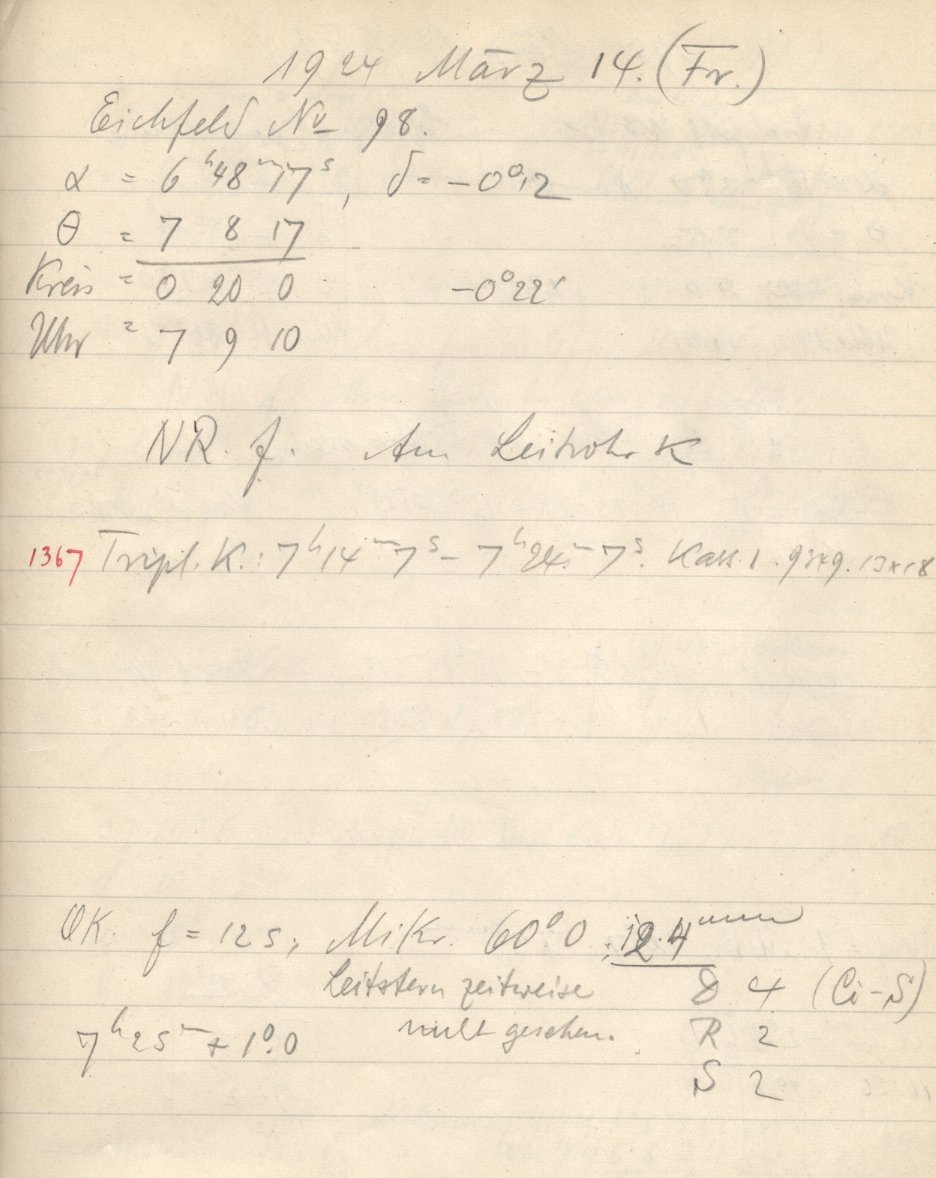 1924 März 14. (Fr.)
Eichfeld No 98.
α = 6ʰ48ᵐ17ˢ, δ = −0°12
θ = 7 8 17
Kreis = 0 20 0 −0°22'
Uhr = 7 9 10
NR. f. Am Leitrohr K
1367 Tripl. K.: 7ʰ14ᵐ7ˢ – 7ʰ24ᵐ7ˢ. Kass. 1. 9x9. 13x18
OK. f = 125; Mikr. 60°0; 12.4
Leitstern zeitweise D 4 (Ci-S)
7ʰ25ᵐ + 1°.0 nicht gesehen. R 2
S 2